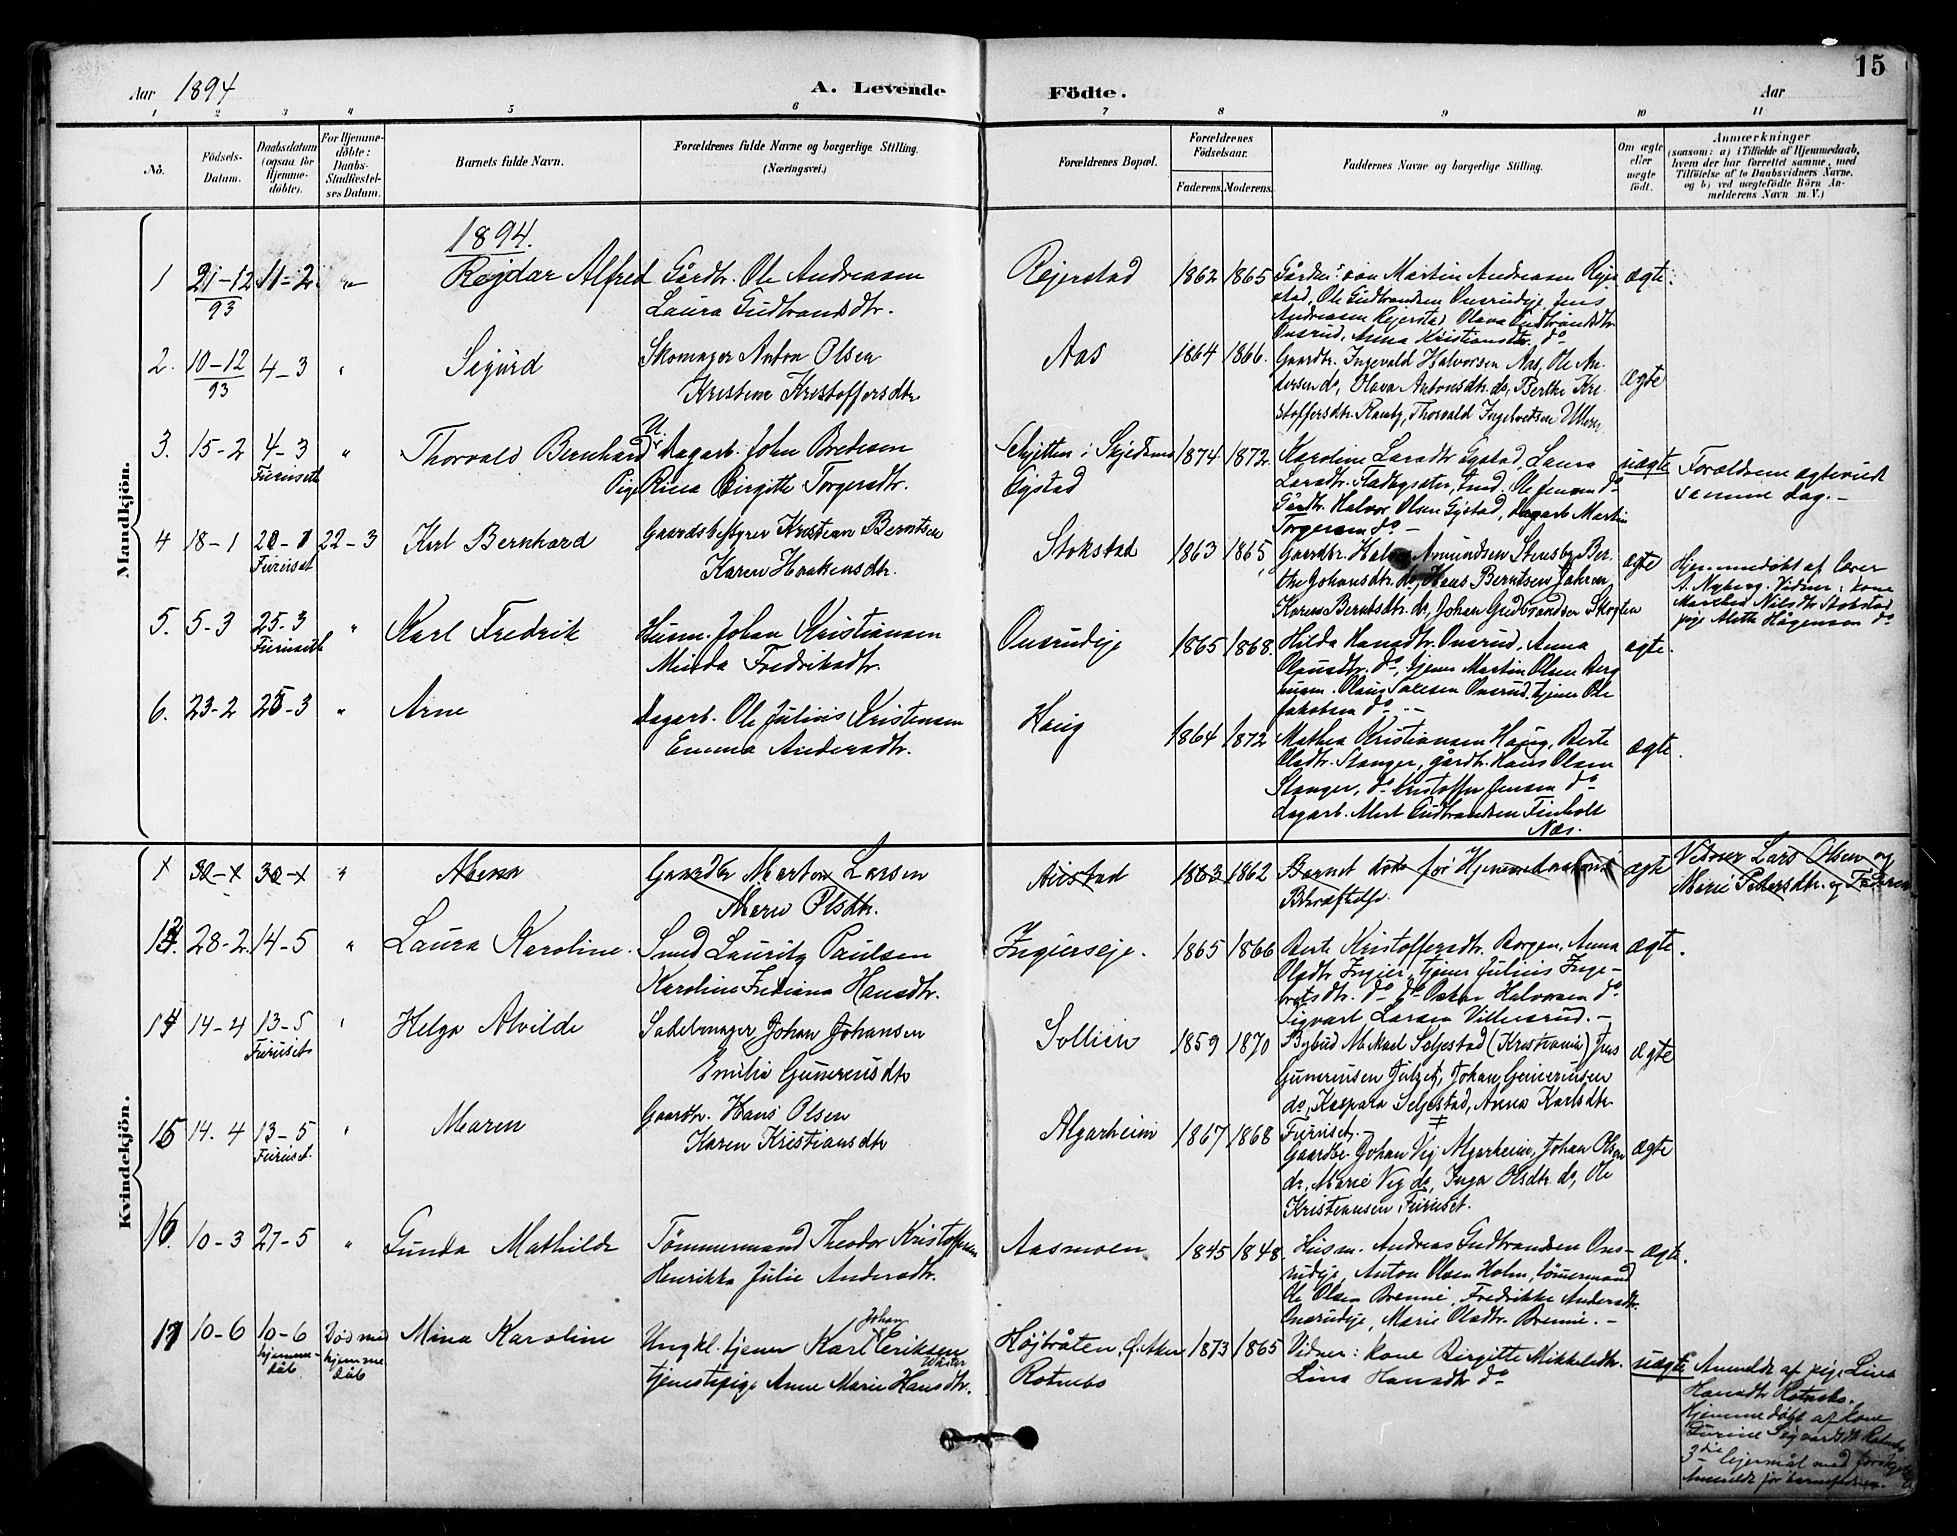 15
Aar 1894
A. Levende Födte.
Aar
1 2 3 4 5 6 7 8 9 10 11
No.
Födsels-Datum.
Daabsdatum (ogsaa for Hjemme-döbte).
For Hjemme-döbte: Daabs-Stadfæstel-ses Datum.
Barnets fulde Navn.
Forældrenes fulde Navne og borgerlige Stilling. (Næringsvei.)
Forældrenes Bopæl.
Forældrenes Födselsaar.
Faderens. Moderens.
Faddernes Navne og borgerlige Stilling.
Om ægte eller uægte født.
Anmærkninger
(saasom: a) i Tilfælde af Hjemmedaab,
hvem der har forrettet samme, med
Tilföielse af to Daabsvidners Navne,
og b) ved uægtefödte Börn An-
melderens Navn m. V.)
Mandkjön.
1894.
1 21-12 93 11-2 " Rejdar Alfred
Gårdbr. Ole Andreasen
Laura Gudbrandsdtr.
Rejerstad 1862 1865
Martin Andreasen Rejer
stad, Ole Gudbrandsen Onsrudeje, Jens
Andreasen Rejerstad, Olava Gudbrandsdtr.
Onsrud, Anna Kristiansdtr. do
ægte.
2. 10-12 93 4-3 " Sigurd
Skomager Anton Olsen
Kristine Kristoffersdtr
Aas 1864 1866.
Gaardbr. Ingevald Halvorsen Aas, Ole An-
dersen do, Olava Antonsdtr. do, Berthe Kri-
stoffersdtr. Thorvald
ægte
3. 15-2 4-3 Furuseth " Thorvald Bernhard
U. Dagarb. John Bredesen
Pige Rina Birgitte Torgersdtr.
Skjetten i Skjedsmo
Gystad
1874 1872.
Karoline Larsdtr Gystad, Laura
Larsdtr. Ole Jensen do
Gårdbr. Halvor Olsen Gystad, dagarb. Martin
Torgersen do -
uægte
Forældrene ægteviet
samme dag. -
4 18-1 20-1 Furuset 22-3 Karl Bernhard
Gaardsbestyrer Kristian Berntsen
Karen Haakensdtr.
Stokstad 1863 1865,
Gaardbr. Amundsen Ber-
the Johansdtr. do, Hans Berntsen
Karen Berntsdtr. do, Johan Gudbrandsen
ægte
Hjemmedøbt af Lærer
A. Nyberg. Vidner: kone
Nilsdtr. Stokstad
pige Mette do
5. 5-3 25-3 Furuseth " Karl Fredrik
Husm. Johan Kristiansen
Minda Fredriksdtr.
Onsrudeje 1865 1868.
Hilda Hansdtr. Onsrud, Anna
do, tjener Martin Olsen Berg
husm. Olaus Onsrud, tjener Ole
Jakobsen do -
ægte.
6. 23-2 25-3 " Arne
Dagarb. Ole Julius Kristensen
Emma Andersdtr.
Haug 1864 1872
Mathea Kristiansen Haug, Berte
Olsdtr. Stanger, gårdbr. Hans Olsen
Stanger, do Kristoffer Jensen do
dagarb. Gudbrandsen Finholt
Næs.
ægte.
Kvindekjön.
1 30-1 30-1 "
Gaardbr Marten Larsen
Maren Olsdtr.
1863 1862
Barnet døde før Hjemmedaabens
Bekræftelse.
ægte
Vidner Lars Olsen og
Marie Petersdtr. og Faderen
13. 28-2. 14-5 " Laura Karoline.
Smed Lauritz Paulsen
Karoline Frediana Hansdtr.
Ingierseje. 1865 1866
Berte Kristoffersdtr. Borgen, Anna
Olsdtr. Ingier, tjener Julius Inge-
bretsdtr. do do Oskar Halvorsen do
Sigvart Larsen -
ægte.
14 14-4 13-5 Furuset " Helga Alvilde
Sadelmager Johan Johansen
Emilie Gunerusdtr
Sollien 1859 1870
Bybud Mikael Seljestad (Kristiania) Jens
Gunerusen Julset, Johan Gunerusen
do, Kaspara Seljestad, Anna Karlsdtr
Furuset. -
ægte
15 14.4 13-5 Furuset. " Maren
Gaardbr. Hans Olsen
Karen Kristiansdtr
Algarheim 1867 1868
Gaardbr Johan Vig Algarheim, Johan Olsen
do, Marie Vig do, Inga Olsdtr. do, Ole
Kristiansen Furuset.
ægte
16. 10-3 27-5 " Gunda Mathilde
Tömmermand Theodor Kristoffersen
Henrikka Julie Andersdtr.
Aasmoen 1845 1848.
Husm. Andreas Gudbrandsen Ons-
rudeje, Anton Olsen Holm, tömmermand
Ole Olsen Brenni, Fredrikke Andersdtr.
Onsrudeje, Marie Olsdtr. Brenni. -
ægte.
17 10-6 10-6 hjemme-dåb Død med hjemme dåb Mina Karoline
Ungkl. tjener Karl Johan Eriksen
Tjenestepige Anne Marie Hansdtr.
Højbråten, Ø. Aker
Rotnebo
1873 1865
Vidner: kone Birgitte Mikkelsdtr.
Lina Hansdtr do
uægte
Anmeldt af pige Lina
Hansdtr Rotnebo.
Hjemmedøbt af kone
3die lejermål med
Anmeldt for barnefader